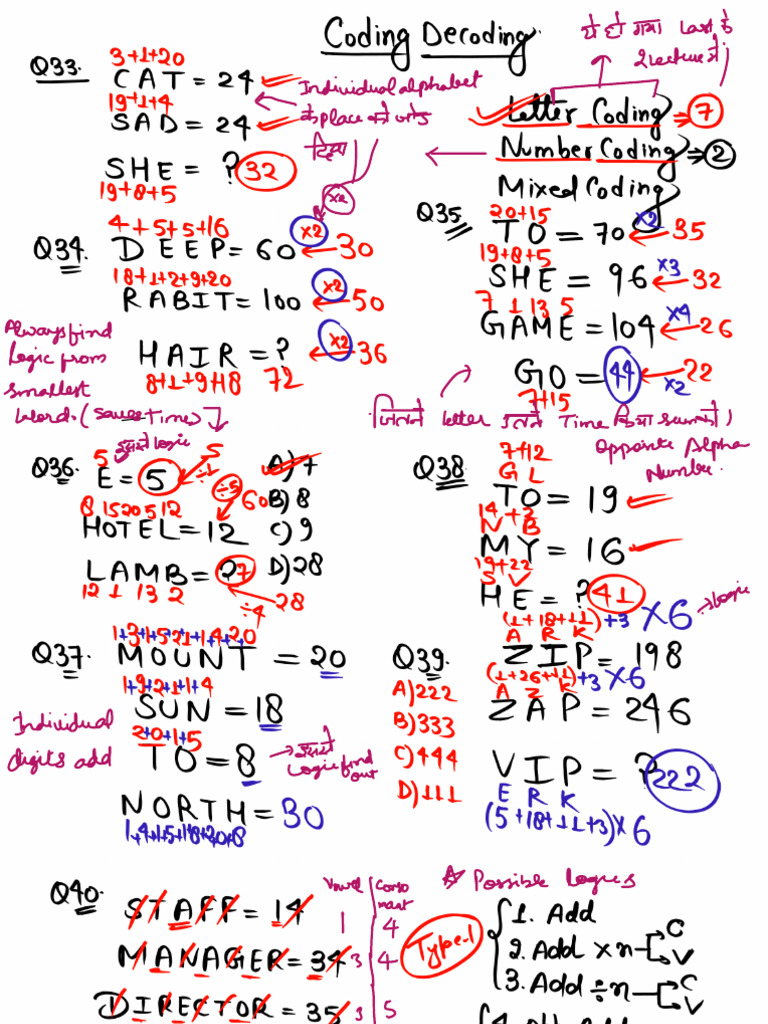 Coding Decoding
ये दो गया Last के
2 lectures में
Q33.
3+1+20
CAT = 24
19+1+4
SAD = 24
SHE = ? 32
19+8+5
Individual alphabet
के place को जोड़
दिया
Letter Coding ⇒ 7
Number Coding ⇒ 2
Mixed Coding
Q34.
4+5+5+16
DEEP = 60 ×2 ← 30
18+1+2+9+20
RABIT = 100 ×2 ← 50
HAIR = ? ×2 ← 36
8+1+9+18 72
×2
Always find
logic from
smallest
word. (Saves Time)
Q35
20+15
TO = 70 ×2 ← 35
19+8+5
SHE = 96 ×3 ← 32
7 1 13 5
GAME = 104 ×4 ← 26
GO = 44 ×2 ← 22
7+15
जितने letter उतने Time किया sum को।
Q36.
इससे logic
5
E = 5 ÷1 5
8 15 20 5 12
HOTEL = 12 ÷5 60
LAMB = ? 7
12 1 13 2
÷4 28
A) 7
B) 8
C) 9
D) 28
Opposite Alpha
Number.
Q38
7+12
G L
TO = 19
14+2
N B
MY = 16
19+22
S V
HE = ? 41
Q37.
1+3+1+5+2+1+1+4+2+0
MOUNT = 20
1+9+2+1+1+4
SUN = 18
2+0+1+5
TO = 8 → इससे
Logic find
out
NORTH = 30
1+4+1+5+1+8+2+0+8
Individual
digits add
Q39.
(1+18+11)+3 ×6 → logic
A R K
ZIP = 198
(1+26+11)+3 ×6
A Z K
ZAP = 246
VIP = ? 222
E R K
(5+18+11+3)×6
A) 222
B) 333
C) 444
D) 111
Q40.
Vowel Consonant
STAFF = 14 1 4
MANAGER = 34 3 4
DIRECTOR = 35 3 5
☆ Possible Logics
Type-1
1. Add
2. Add × n C V
3. Add ÷ n C V